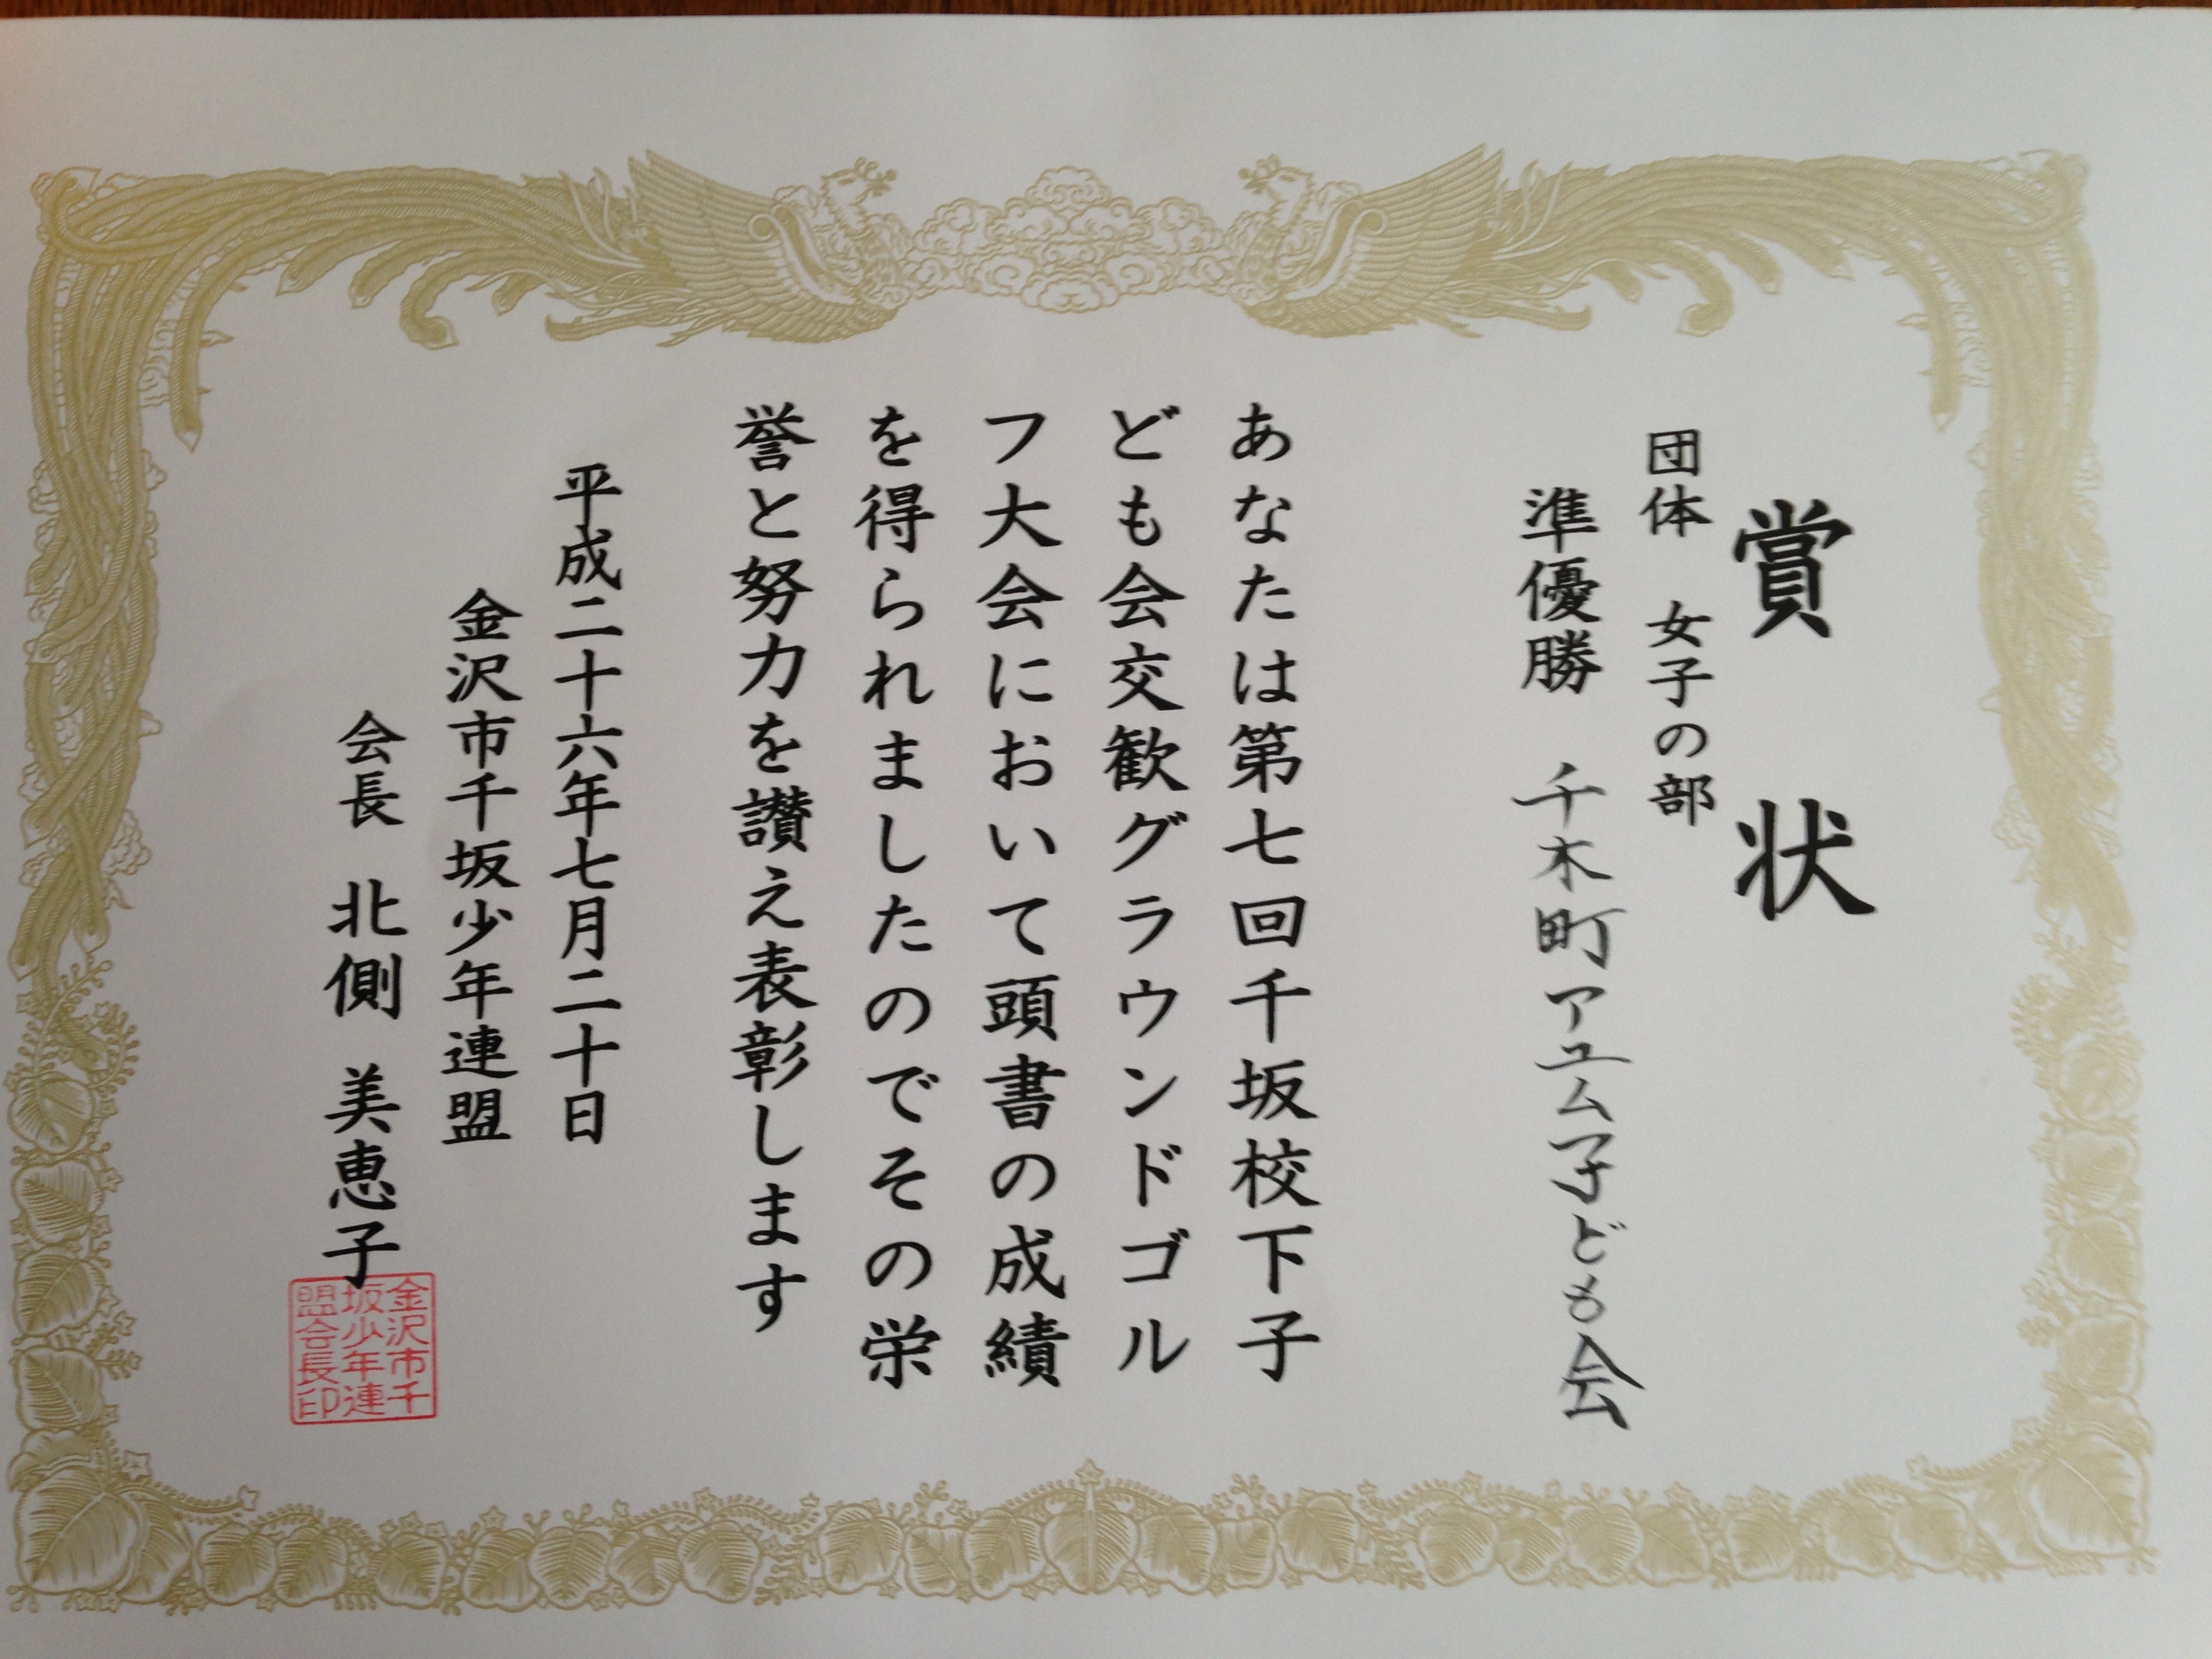 賞状
団体 女子の部
準優勝 千木町アユム子ども会
あなたは第七回千坂校下子
ども会交歓グラウンドゴル
フ大会において頭書の成績
を得られましたのでその栄
誉と努力を讃え表彰します
平成二十六年七月二十日
金沢市千坂少年連盟
会長 北側 美恵子
金沢市千
坂少年連
盟会長印